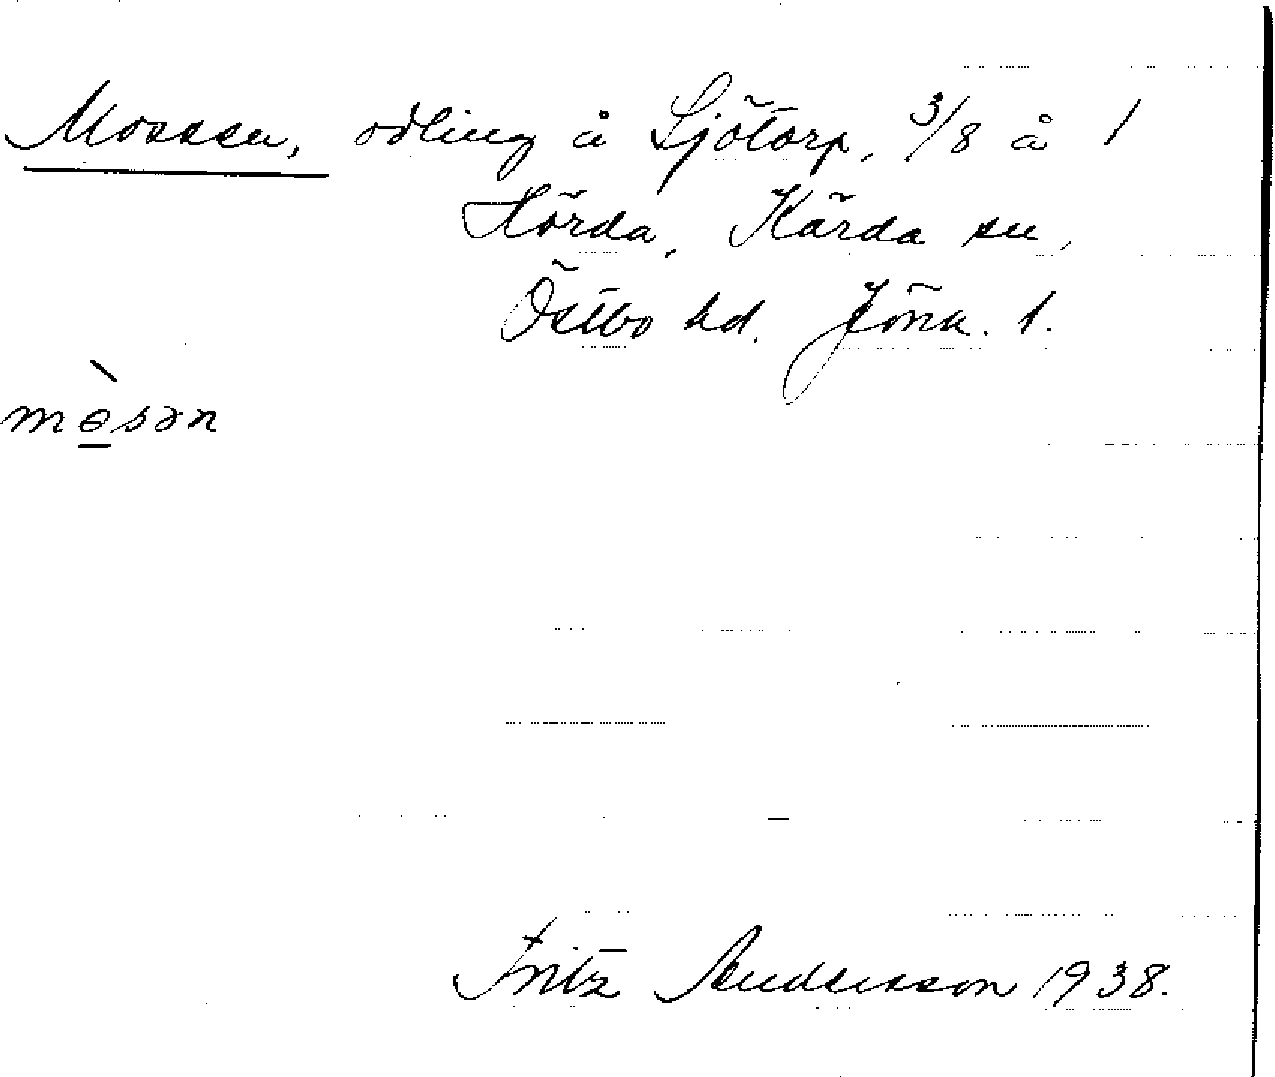 Mossen, odling å Sjötorp, 3/8 å 1
Hörda, Kärda sn,
Östbo hd. Jönk. l.
mɵ̀sən
Fritz Andersson 1938.